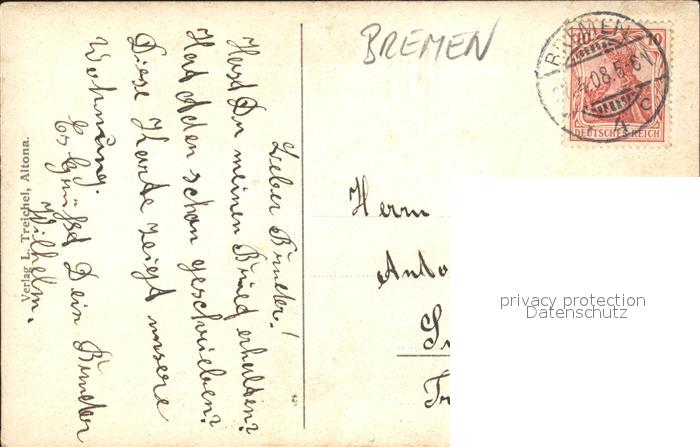 Lieber Bruder!
Hast Du meinen Brief erhalten?
Hat schon geschrieben?
Diese Karte zeigt unsere
Wohnung.
Es grüsst Dein Bruder
Wilhelm.
Verlag I. Treichel, Altona.
BREMEN
BREMEN
4.08.5-6
10 10
DEUTSCHES REICH
Herrn
privacy protection
Datenschutz